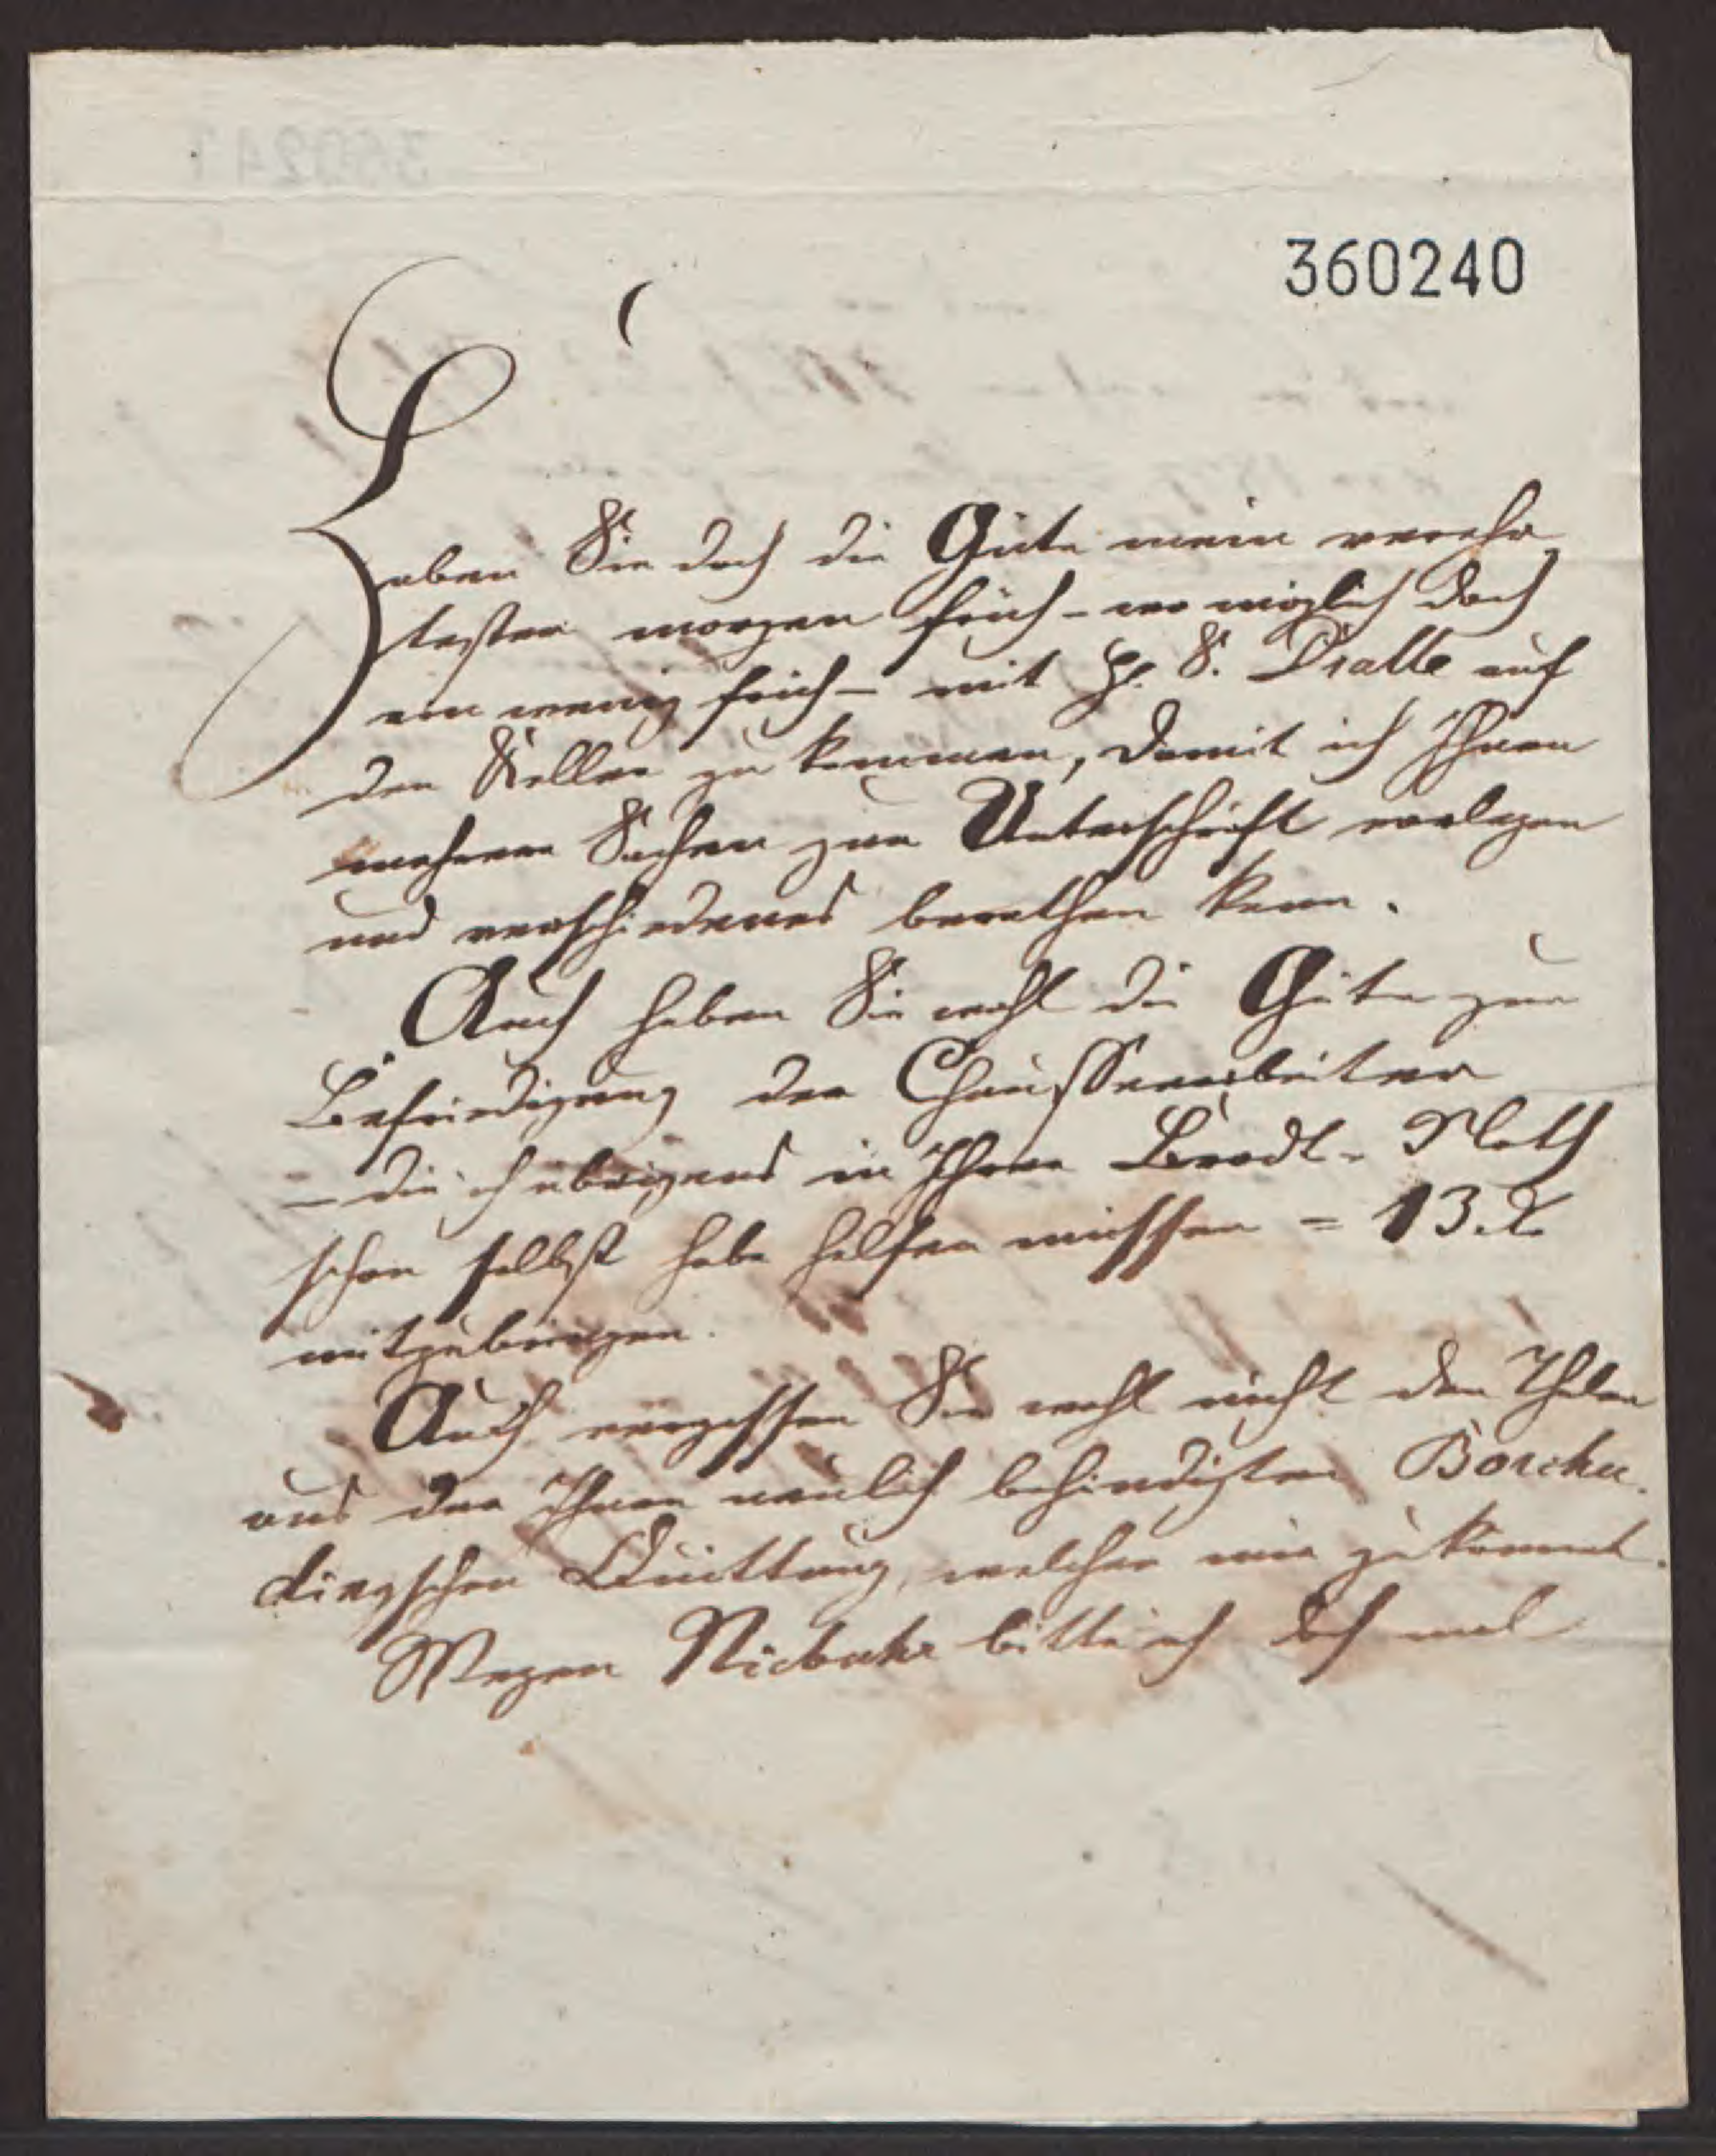 360240
Haben Sie doch die Güte mein verehr-
tester morgen früh - wo möglich doch
ein wenig früh - mit H. S. Dralle auf
den Keller zu kommen, damit ich Ihnen
mehrere Sachen zur Unterschrift vorlegen
und verschiedenes berathen kann.
Auch haben Sie wohl die Güte zur
Befriedigung der Chausseearbeiter
- die ich übrigens in Ihrer Brodt-Noth
schon selbst habe helfen müssen = 13.
mitzubringen.
Auch vergessen Sie wohl nicht den Thaler
aus der Ihnen neulich behändigten Borchar-
dingschen Quittung, welcher mir zukommt.
Wegen Niebuhr bitte ich doch mal